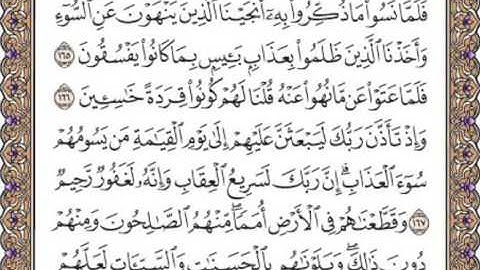 فَلَمَّا نَسُوا۟ مَا ذُكِّرُوا۟ بِهِۦٓ أَنجَيْنَا ٱلَّذِينَ يَنْهَوْنَ عَنِ ٱلسُّوٓءِ
وَأَخَذْنَا ٱلَّذِينَ ظَلَمُوا۟ بِعَذَابٍۭ بَـِٔيسٍۭ بِمَا كَانُوا۟ يَفْسُقُونَ ١٦٥
فَلَمَّا عَتَوْا۟ عَن مَّا نُهُوا۟ عَنْهُ قُلْنَا لَهُمْ كُونُوا۟ قِرَدَةً خَٰسِـِٔينَ ١٦٦
وَإِذْ تَأَذَّنَ رَبُّكَ لَيَبْعَثَنَّ عَلَيْهِمْ إِلَىٰ يَوْمِ ٱلْقِيَٰمَةِ مَن يَسُومُهُمْ
سُوٓءَ ٱلْعَذَابِ ۗ إِنَّ رَبَّكَ لَسَرِيعُ ٱلْعِقَابِ ۖ وَإِنَّهُۥ لَغَفُورٌ رَّحِيمٌ
١٦٧ وَقَطَّعْنَٰهُمْ فِى ٱلْأَرْضِ أُمَمًا ۖ مِّنْهُمُ ٱلصَّٰلِحُونَ وَمِنْهُمْ
دُونَ ذَٰلِكَ ۖ وَبَلَوْنَٰهُم بِٱلْحَسَنَٰتِ وَٱلسَّيِّـَٔاتِ لَعَلَّهُمْ